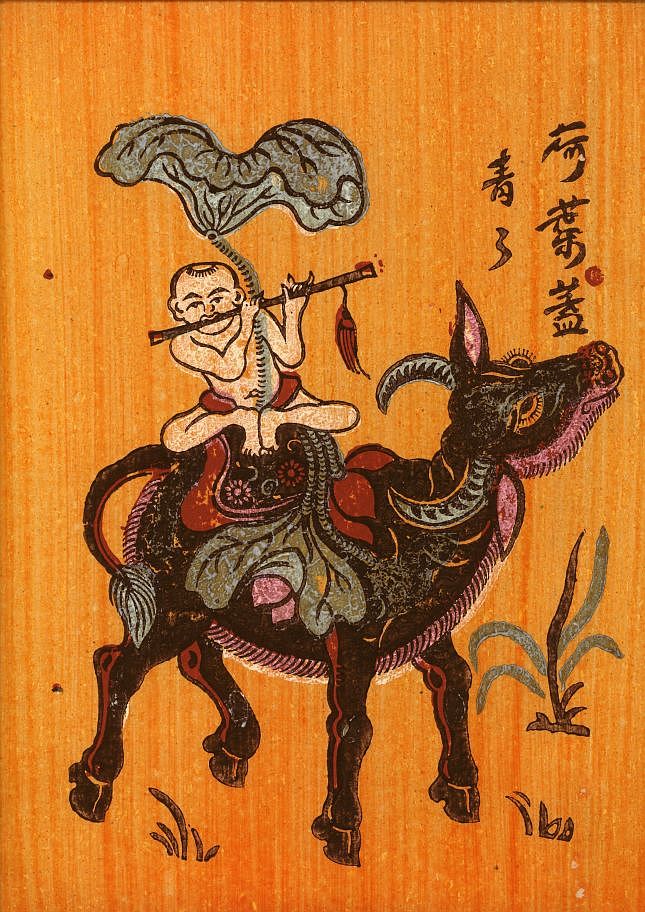 荷葉蓋
青〻